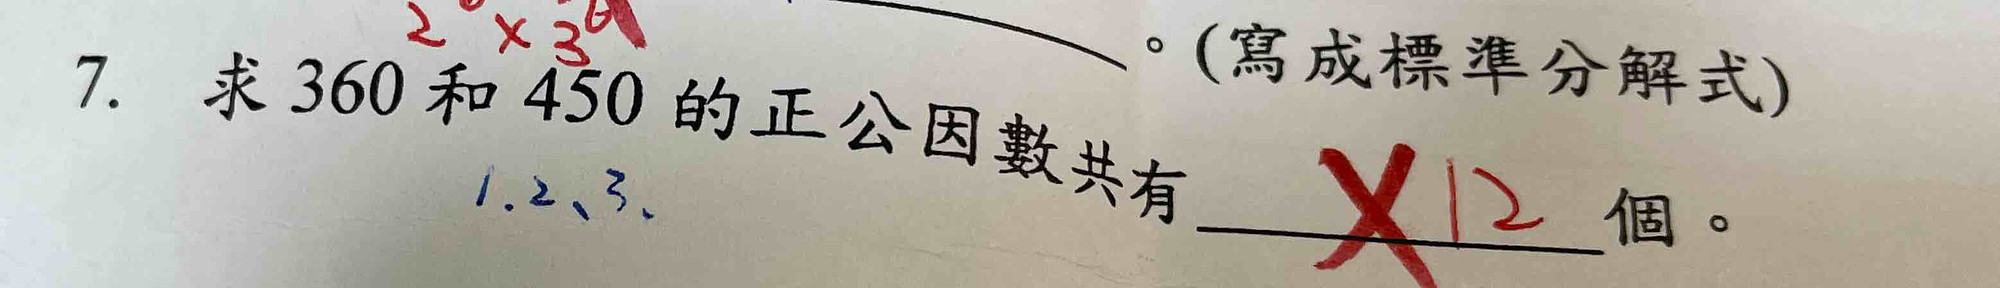 2 × 3
。(寫成標準分解式)
7. 求 360 和 450 的正公因數共有 X 12 個。
1.2、3、